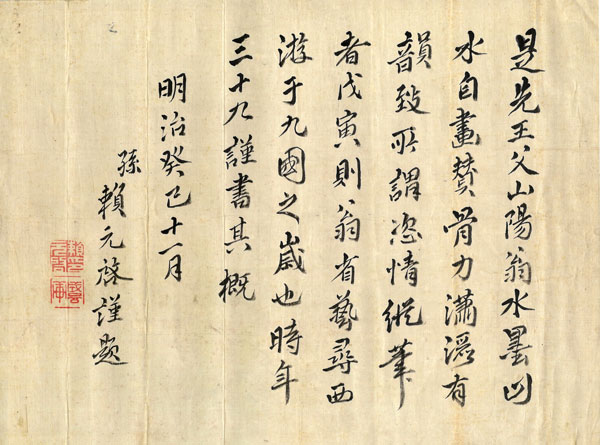 是先王父山陽翁水墨山
水自畫賛骨力瀟灑有
韻致所謂恣情縦筆
者戊寅則翁省藝尋西
游于九國之歳也時年
三十九謹書其概
明治癸巳十一月
孫 賴元啓謹題